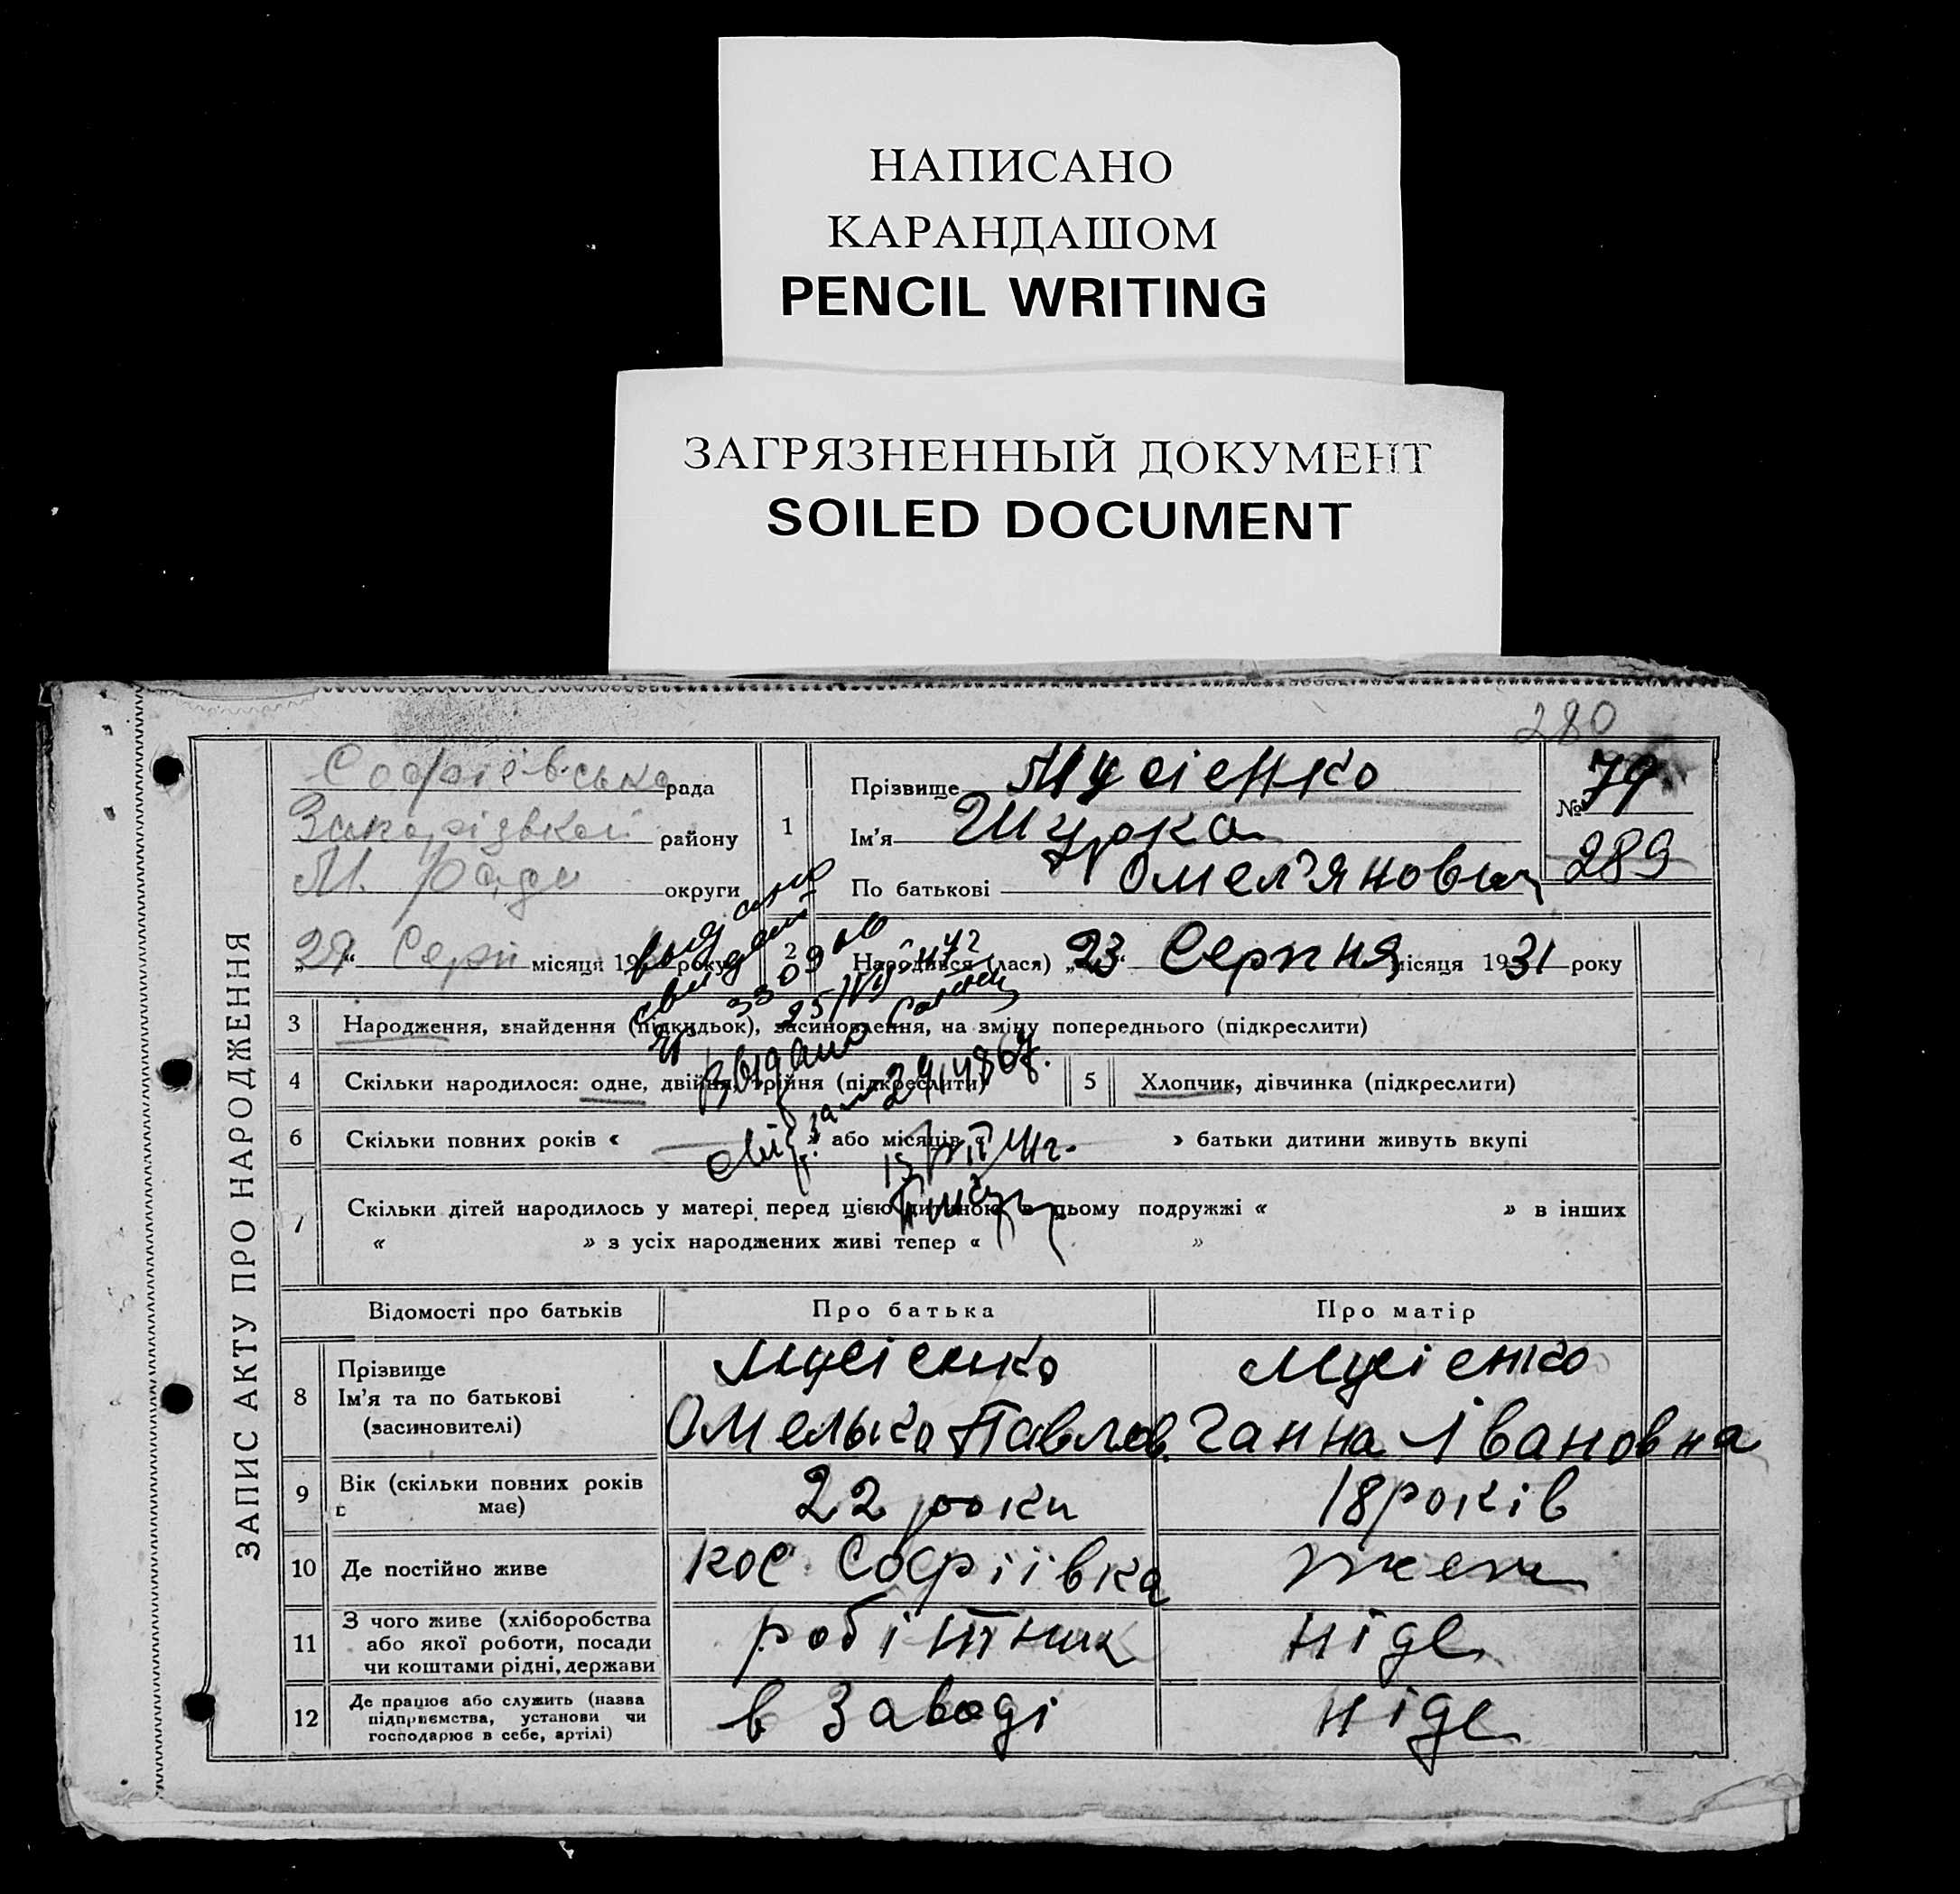 НАПИСАНО
КАРАНДАШОМ
PENCIL WRITING
ЗАГРЯЗНЕННЫЙ ДОКУМЕНТ
SOILED DOCUMENT
280
ЗАПИС АКТУ ПРО НАРОДЖЕННЯ
Софіївська рада
району
М. Ради округи
місяця 19 року
1
Прізвище Мусієнко
Ім'я Шурка
По батькові Омел'янович
№ 79
289
2 Народився (лася) „23" Серпня місяця 1931 року
3 Народження, знайдення (підкидьок), засиновлення, на зміну попереднього (підкреслити)
4 Скільки народилося: одне, двійня, трійня (підкреслити)
5 Хлопчик, дівчинка (підкреслити)
6 Скільки повних років « » або місяців « » батьки дитини живуть вкупі
7 Скільки дітей народилось у матері перед цією дитиною в цьому подружжі « » в інших
« » з усіх народжених живі тепер « »
Видано
Відомості про батьків Про батька Про матір
8 Прізвище
Ім'я та по батькові
(засиновителі)
Мусієнко
Омелько Павлов.
Мусієнко
Ганна Івановна
9 Вік (скільки повних років
має)
22 роки
18 років
10 Де постійно живе
Софіївка
11 З чого живе (хліборобства
або якої роботи, посади
чи коштами рідні, держави
робітник
ніде
12 Де працює або служить (назва
підприємства, установи чи
господарює в себе, артілі)
в заводі
ніде